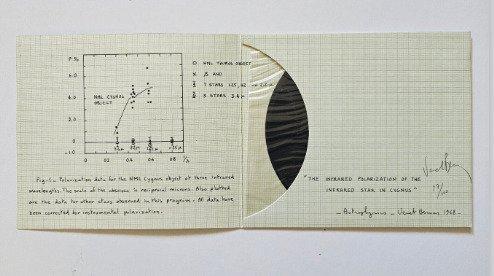 P %
6.0
4.0
2.0
0
-1.0
0 0.2 0.4 0.6 0.8 1/λ
NML CYGNUS
OBJECT
NML CYGNUS OBJECT
β AND
7 STARS
5 STARS
Fig.1._ Polarization data for the NML Cygnus object at three infrared
wavelengths. The scale of the abscissa is reciprocal microns. Also plotted
are the data for other stars observed in this program. All data have
been corrected for instrumental polarization.
"THE INFRARED POLARIZATION OF THE
INFRARED STAR IN CYGNUS"
_ Astrophysics _ Venet Bernar 1968 _